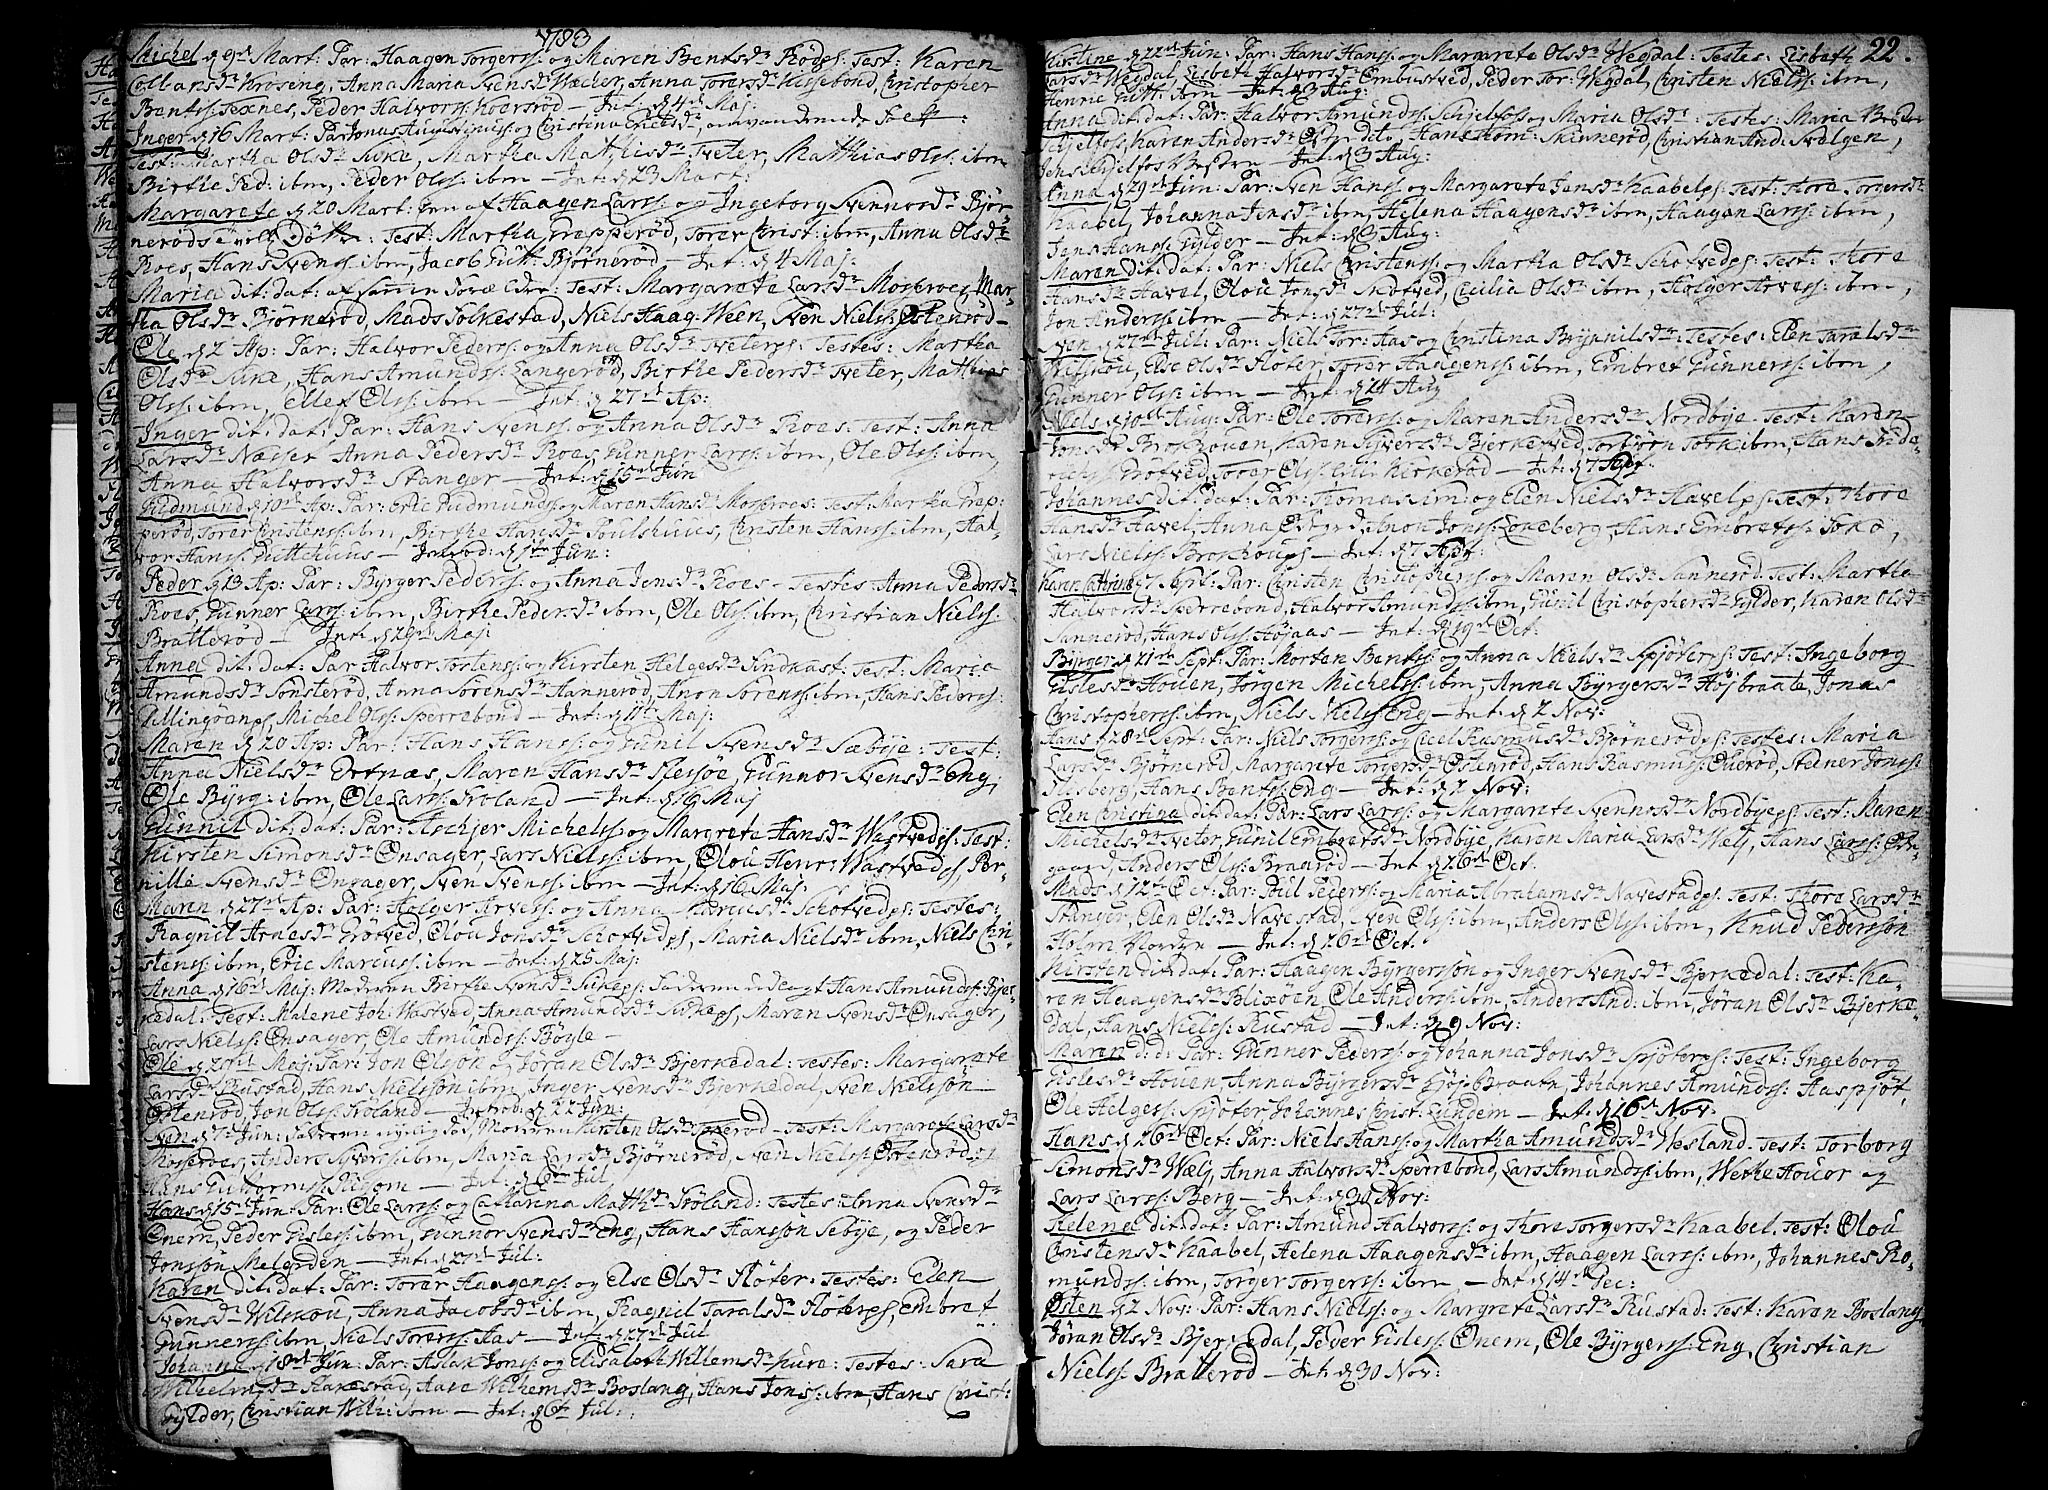 1783
Michel d 9de Mart: Par: Haagen Torgers: og Maren Bentsdr Röd Test: Karen
Anna Maria Svensdr Anna Toresdr Kirsebond, Christopher
Bents: Texnes, Peder Halvors: — Int: d 4de Maj:
Inger d 16 Mart: Par Jonas Augustinus og Christina omvandrende
Test: Martha Olsdr Martha Matthisdr Tveter, Matthias Ols: ibm
Birthe Ped: ibm, Peder Ols: ibm — Int: d 23 Mart:
Margarete d 20 Mart: af Haagen Lars: og Ingeborg Svennersdr Björ-
neröds Test: Martha Grapperöd, Torer Christ: ibm, Anna Olsdr
Roes, Hans Svens: ibm, Jacob Gutt: Björneröd — Int: d 4 Maj:
Maria dit: dat: af samme Test: Margarete Larsdr Mosseroes, Mar-
tha Olsdr Björneröd, Mads Solkestad, Niels Haag: Ween, Sven Niels: Östenröd
Ole d 2 Ap: Par: Halvor Peders: og Anna Olsdr Tveter: Testes: Martha
Olsdr Hans Amunds: Langeröd, Birthe Pedersdr Tveter, Matthias
Ols: ibm, Ellef Ols: ibm — Int: d 27de Ap:
Inger dit: dat: Par: Hans Svens: og Anna Olsdr Roes: Test: Anna
Larsdr Anna Pedersdr Roes, Gunner Lars: ibm, Ole Ols: ibm,
Anna Halvorsdr Stanger — Int: d 15de Jun
Gudmund d 10de Ap: Par: Eric Gudmunds: og Maren Hansdr Mosseroes: Test: Martha Grap-
peröd, Torer Christens: ibm, Birthe Hansdr Poulshuus, Christen Hans: ibm, Hal-
vor Hans: — Introd: d Jun:
Peder d 13 Ap: Par: Byrger Peders: og Anna Jensdr Roes — Testes Anna Pedersdr
Roes, Gunner Lars: ibm, Birthe Pedersdr ibm, Ole Ols: ibm, Christian Niels:
Bratteröd — Int: d 29de Maj:
Anna dit: dat: Par Halvor Tostens: og Kirsten Helgesdr Test: Maria
Amundsdr Sonsteröd, Anna Sörensdr Hanneröd, Anon Sörens: ibm, Hans Peders:
Ullingöen, Michel Ols: Sperrebond — Int: d 11te Maj:
Maren d 20 Ap: Par: Hans Hans: og Gunil Svensdr Sæbye: Test:
Anna Nielsdr Maren Hansdr Gunnor Svensdr Eng,
Ole Byrg: ibm, Ole Lars: Fröland — Int: d 16 Maj
Gunnil dit: dat: Par: Aschjer Michels: og Margrete Hansdr Wastved: Test:
Kirsten Simonsdr Onsager, Lars Niels: ibm, Olou Henr: Wastved, Per-
nille Svensdr Onsager, Sven Svens: ibm — Int: d 16 Maj:
Maren d 27de Ap: Par: Holger Arves: og Anna Marcusdr Schotved: Testes:
Ragnil Arnesdr Olou Jonsdr Schotved, Maria Nielsdr ibm, Niels Chri-
stens: ibm, Eric Marcus: ibm — Int: d 25 Maj:
Anna d 16de Maj: Moderen Birthe Svensdr faderen udlagt Hans Amunds: Bjer-
kedal: Test: Malene Joh: Wastved, Anna Amundsdr Maren Svensdr Onsager,
Lars Niels: Onsager, Ole Amunds: Böyle —
Ole d 29de Maj: Par: Jon Olson og Jöran Olsdr Bjerkedal: Testes: Margarete
Larsdr Rustad, Hans Nielssön ibm, Inger Svensdr Bjerkedal, Sven Nielssön
Östenröd, Jon Ols: Fröland — Introd: d 22 Jun:
Sven d 7de Jun: faderen nylig död, Moderen Kirsten Olsdr — Test: Margarete Larsdr
Mosseroes, Anders Syvers: ibm, Maria Larsdr Björneröd, Sven Niels: Östenröd,
Hans — Int: d 6te Jul:
Hans d 15de Jun: Par: Ole Lars: og Catharina Matthdr Fröland: Testes: Anna Svensdr
Onem, Peder Gisles: ibm, Gunnor Svensdr Eng, Hans Hanssön Sebye, og Peder
Jonssön Meleyden — Int: d 27de Jul:
Karen dit: dat: Par: Torer Haagens: og Else Olsdr Flöter: Testes: Elen
Svensdr Wilskou, Anna Jacobsdr ibm, Ragnil Taralsdr Flöter, Embret
Gunners: ibm, Niels Torers: Aas — Int: d 27de Jul
Johanna d 8de Jun: Par: Aslak Jons: og Elisabeth Wilhemsdr Testes: Sara
Wilhelmsdr Harestad, Aase Wilhemsdr Boslang, Hans Jons: ibm, Hans Christ:
Gylder, Christian Wilh: ibm — Int: d 6te Jul:
22.
Kirstine d 22de Jun: Par: Hans Hans: og Margarete Olsdr Wegdal: Testes: Lisbeth
Larsdr Wegdal, Lisbeth Halvorsdr Embustved, Peder Tor: Wegdal, Christen Niels: ibm,
Henric Gutt: ibm — Int: d 3 Aug:
Anna dit: dat: Par: Halvor Amunds: Schjelfos og Maria Olsdr: Testes: Maria
Schjelfos, Karen Andersdr Hans Thom: Skinneröd, Christian And: Svalgen,
Jens Schjelfos — Int: d 3 Aug:
Anna d 29de Jun: Par: Sven Hans: og Margarete Jensdr Kaabel: Test: Thore Torgersdr
Kaabel, Johanna Jensdr ibm, Helena Haagensdr ibm, Haagen Lars: ibm,
Jens Hans: Gylder — Int: d 3 Aug:
Maren dit: dat: Par: Niels Christens: og Martha Olsdr Schotved: Test: Thore
Hansdr Havel, Olou Jonsdr Skotved, Cecilia Olsdr ibm, Holger Arves: ibm,
Jon Anders: ibm — Int: d 27de Jul:
Sven d 27de Jul: Par: Niels Tor: Aas og Christina Brynnilsdr: Testes: Elen Taralsdr
Wilskou, Else Olsdr Flöter, Torer Haagens: ibm, Embret Gunners: ibm,
Gunner Ols: ibm — Int: d 24 Aug
Niels d 10de Aug: Par: Ole Torers: og Maren Andersdr Nordbye. Test: Maren
Jonsdr Broxhouen, Karen Syversdr Bjerkeved, Torbjörn Tork: ibm, Hans Fride-
richs: Torer Ols: Kirkeröd — Int: d 7 Sept:
Johannes dit: dat: Par: Thomas og Elen Nielsdr Havel: Test: Thore
Hansdr Havel, Anna Jons: Loneberg, Hans Embrets:
Lars Niels: Broxhou — Int: d 7 Sept:
Karen Cathrine d 7 Sept: Par: Christen Christophers: og Maren Olsdr Sanneröd: Test: Martha
Halvorsdr Sperrebond, Halvor Amunds: ibm, Gunil Christophersdr Gylder, Karen Olsdr
Sanneröd, Hans Ols: Höjaas — Int: d 19de Oct:
Byrger d 21de Sept: Par: Morten Bents: og Anna Nielsdr Spjöter: Test: Ingeborg
Gislesdr Houen, Jörgen Michels: ibm, Anna Byrgersdr Höjbraate, Jonas
Christophers: ibm, Niels Niels: Eng — Int: d 2 Nov:
Hans d 28de Sept: Par: Niels Torgers: og Cicel Rasmusdr Björneröd: Testes: Maria
Larsdr Björneröd, Margarete Torgersdr Östenröd, Hans Rasmus: Oueröd, Stener Jons:
Flesberg, Hans Bents: Eng — Int: d 2 Nov:
Elen Christina dit: dat: Par: Lars Lars: og Margarete Svennersdr Nordbye: Test: Karen
Michelsdr Tveter, Gunil Embretsdr Nordbye, Karen Maria Larsdr Welj, Hans Lars: Öde-
gaard, Anders Ols: Braaröd — Int: d 26de Oct.
Mads d 12te Oct: Par: Poul Peders: og Maria Abrahamsdr Navestad: Test: Thore Larsdr
Stanger, Elen Olsdr Navestad, Sven Ols: ibm, Anders Ols: ibm, Knud Pederssön
Holm — Int: d 26de Oct.
Kirsten dit: dat: Par: Haagen Byrgerssön og Inger Svensdr Bjerkedal: Test: Ka-
ren Haagensdr Blixöen, Ole Anders: ibm, Anders And: ibm, Jöran Olsdr Bjerke-
dal, Hans Niels: Rustad — Int: d 9 Nov:
Maren d: d: Par: Gunner Peders: og Johanna Jonsdr Spjöter: Test: Ingeborg
Gislesdr Houen, Anna Byrgersdr Höjbraate, Johannes Amunds: Haaspjöt,
Ole Helges: Spjöter, Johannes Christ: Lundem — Int: d 16de Nov:
Hans d 26de Oct: Par: Niels Hans: og Martha Amundsdr Wesland. Test: Torborg
Simonsdr Wælj, Anna Halvorsdr Sperrebond, Lars Amunds: ibm, Wetle Houor og
Lars Lars: Berg — Int: d 30 Nov:
Helena dit: dat: Par: Amund Halvors: og Thore Torgersdr Kaabel. Test: Olou
Christensdr Kaabel, Helena Haagensdr ibm, Haagen Lars: ibm, Johannes Ro-
munds: ibm, Torger Torgers: ibm — Int: d 14de Dec:
Östen d 2 Nov: Par: Hans Niels: og Margrete Larsdr Rustad: Test: Karen Boslang
Jöran Olsdr Bjerkedal, Peder Gisles: Onem, Ole Byrgers: Eng, Christian
Niels: Bratteröd — Int: d 30 Nov: